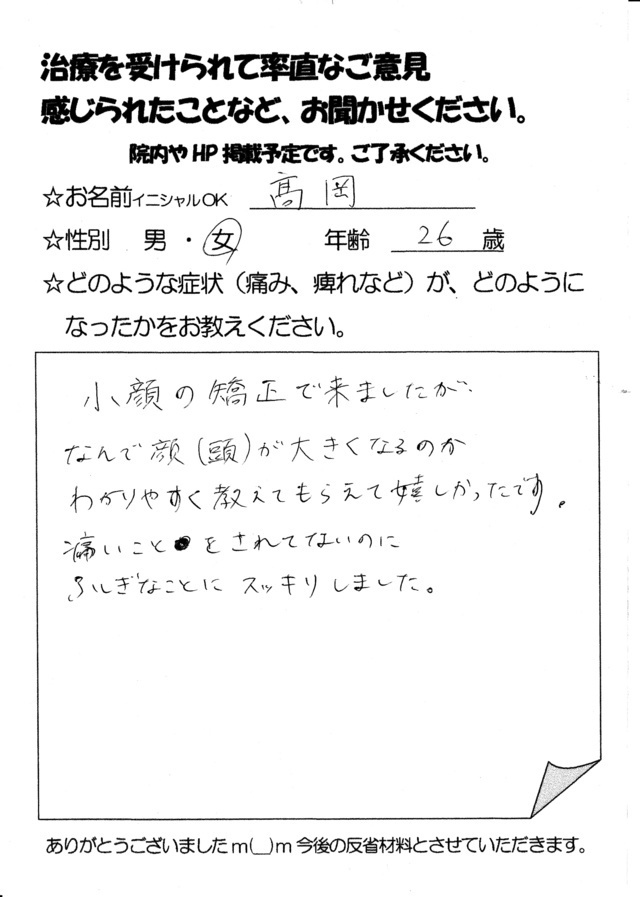 治療を受けられて率直なご意見
感じられたことなど、お聞かせください。
院内やHP掲載予定です。ご了承ください。
☆お名前イニシャルOK 髙岡
☆性別 男・女 年齢 26 歳
☆どのような症状（痛み、痺れなど）が、どのように
なったかをお教えください。
小顔の矯正で来ましたが、
なんで顔(頭)が大きくなるのか
わかりやすく教えてもらえて嬉しかったです。
痛いことをされてないのに
ふしぎなことにスッキリしました。
ありがとうございましたm(__)m今後の反省材料とさせていただきます。